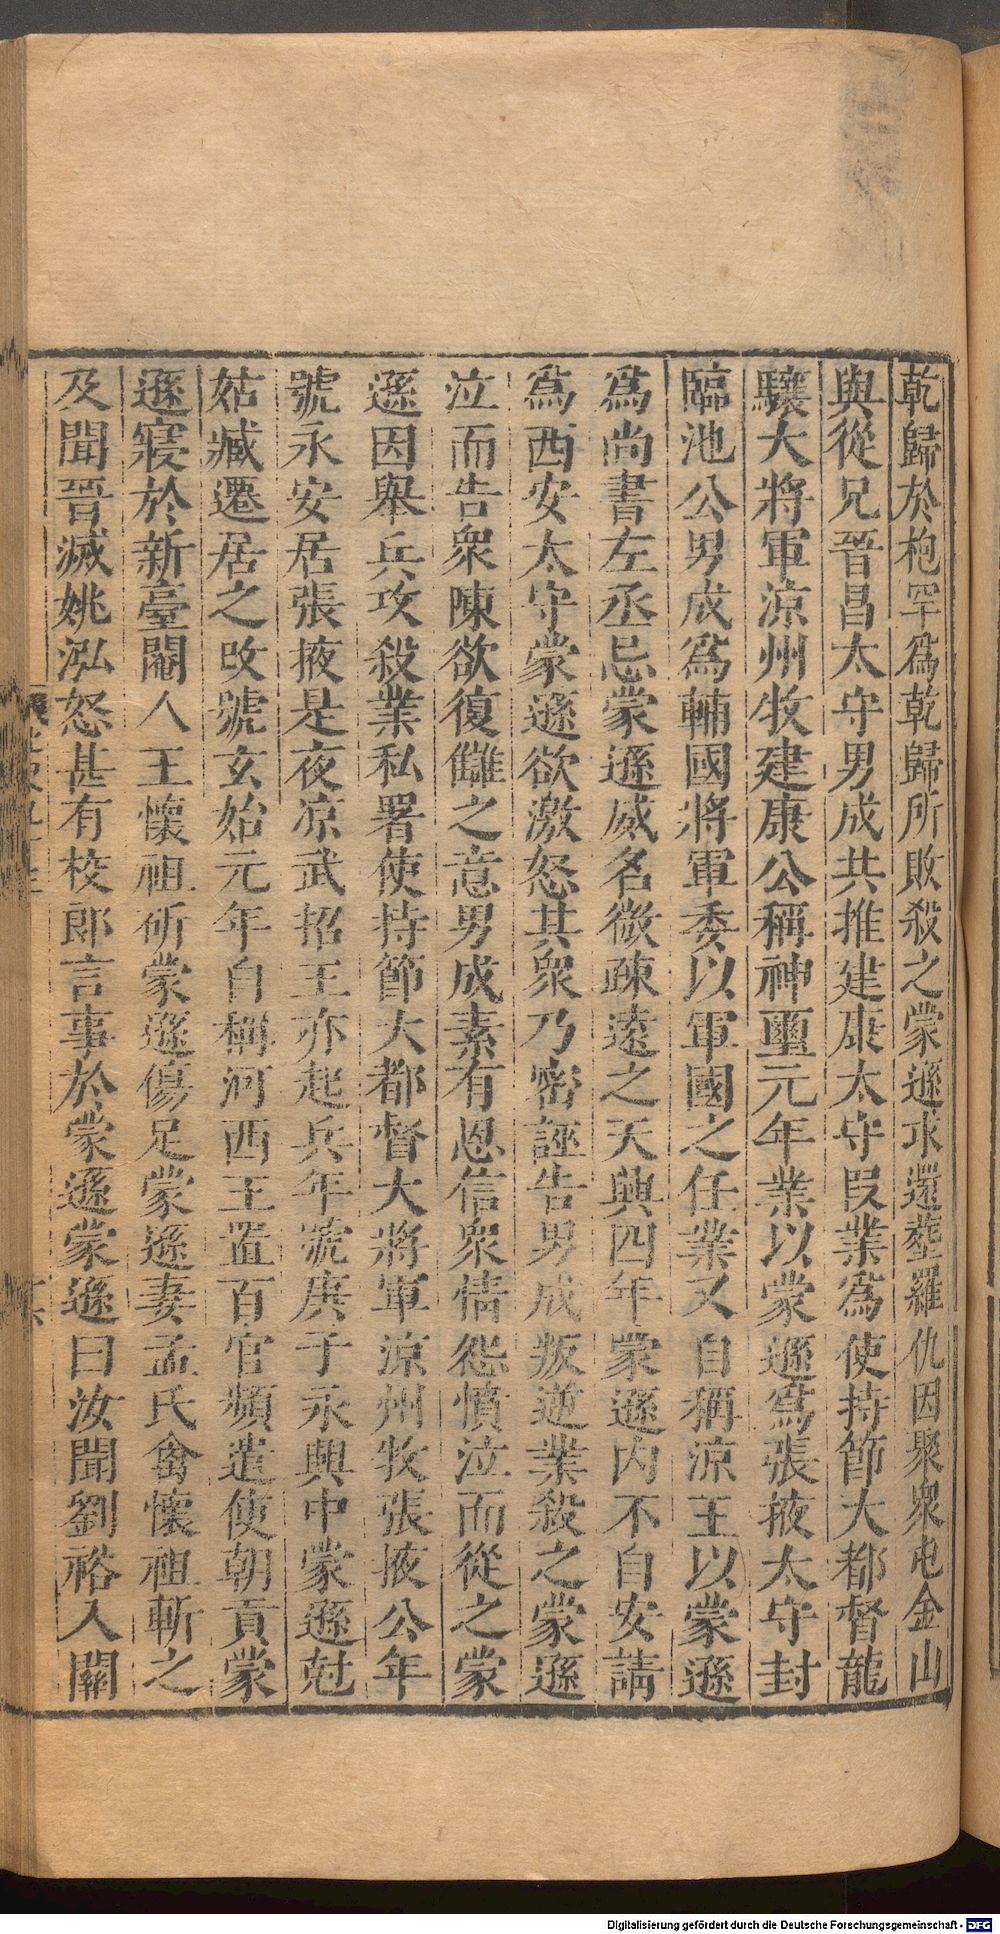 乾歸於枹罕爲乾歸所敗殺之蒙遜求還葬羅仇因聚衆屯金山
與從兄晉昌太守男成共推建康太守段業爲使持節大都督龍
驤大將軍涼州牧建康公稱神璽元年業以蒙遜爲張掖太守封
臨池公男成爲輔國將軍委以軍國之任業又自稱涼王以蒙遜
爲尚書左丞忌蒙遜威名微疎遠之天興四年蒙遜內不自安請
爲西安太守蒙遜欲激怒其衆乃密誣告男成叛逆業殺之蒙遜
泣而告衆陳欲復讎之意男成素有恩信衆情怨憤泣而從之蒙
遜因舉兵攻殺業私署使持節大都督大將軍涼州牧張掖公年
號永安居張掖是夜凉武招王亦起兵年號庚子永興中蒙遜尅
姑臧遷居之改號玄始元年自稱河西王置百官頻遣使朝貢蒙
遜寢於新臺閹人王懷祖斫蒙遜傷足蒙遜妻孟氏禽懷祖斬之
及聞晉滅姚泓怒甚有校郎言事於蒙遜蒙遜曰汝聞劉裕入關
Digitalisierung gefördert durch die Deutsche Forschungsgemeinschaft - DFG